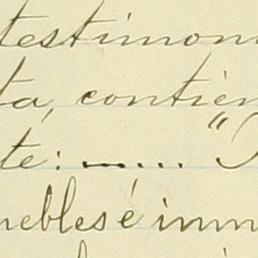 testimoni
ta, contien
te: "
uebles é inm